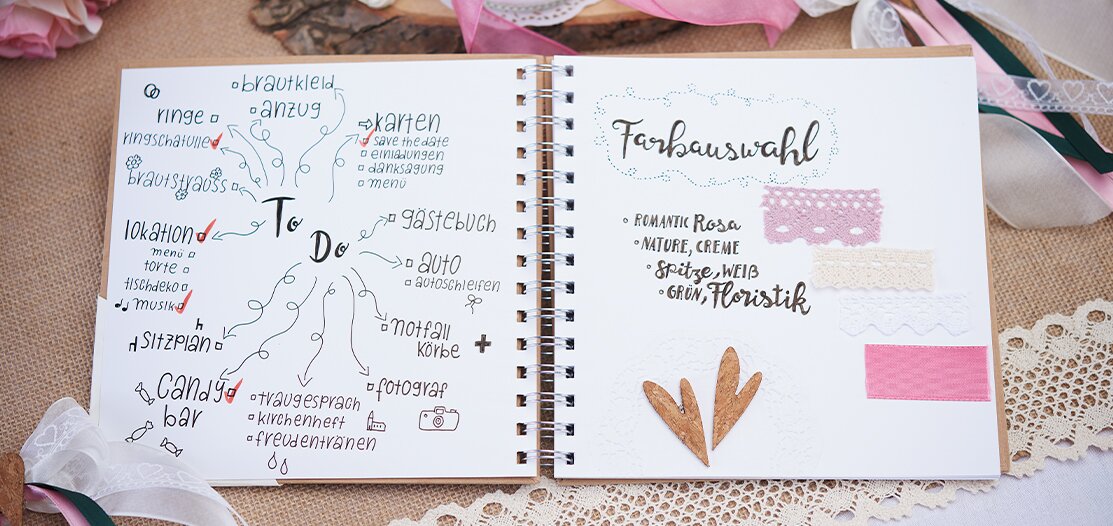 brautkleid
anzug
ringe
ringschatulle
brautstrauss
karten
save the date
einladungen
danksagung
menü
To Do
lokation
menü
torte
tischdeko
musik
sitzplan
Candy
bar
traugespräch
kirchenheft
freudentränen
fotograf
notfall
körbe
auto
autoschleifen
gästebuch
Farbauswahl
ROMANTIC Rosa
NATURE, CREME
Spitze, WEIß
GRÜN, Floristik